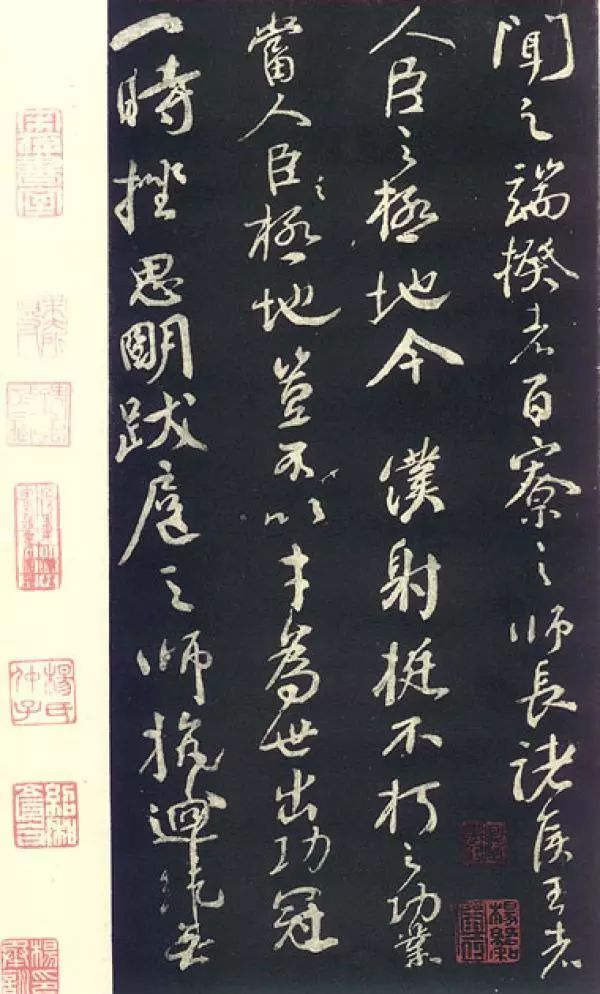 聞之端揆者百寮之師長諸侯王者
人臣之極地今僕射挺不朽之功業
當人臣之極地豈不以才爲世出功冠
一時挫思明跋扈之師抗迴紇無
楊氏仲子